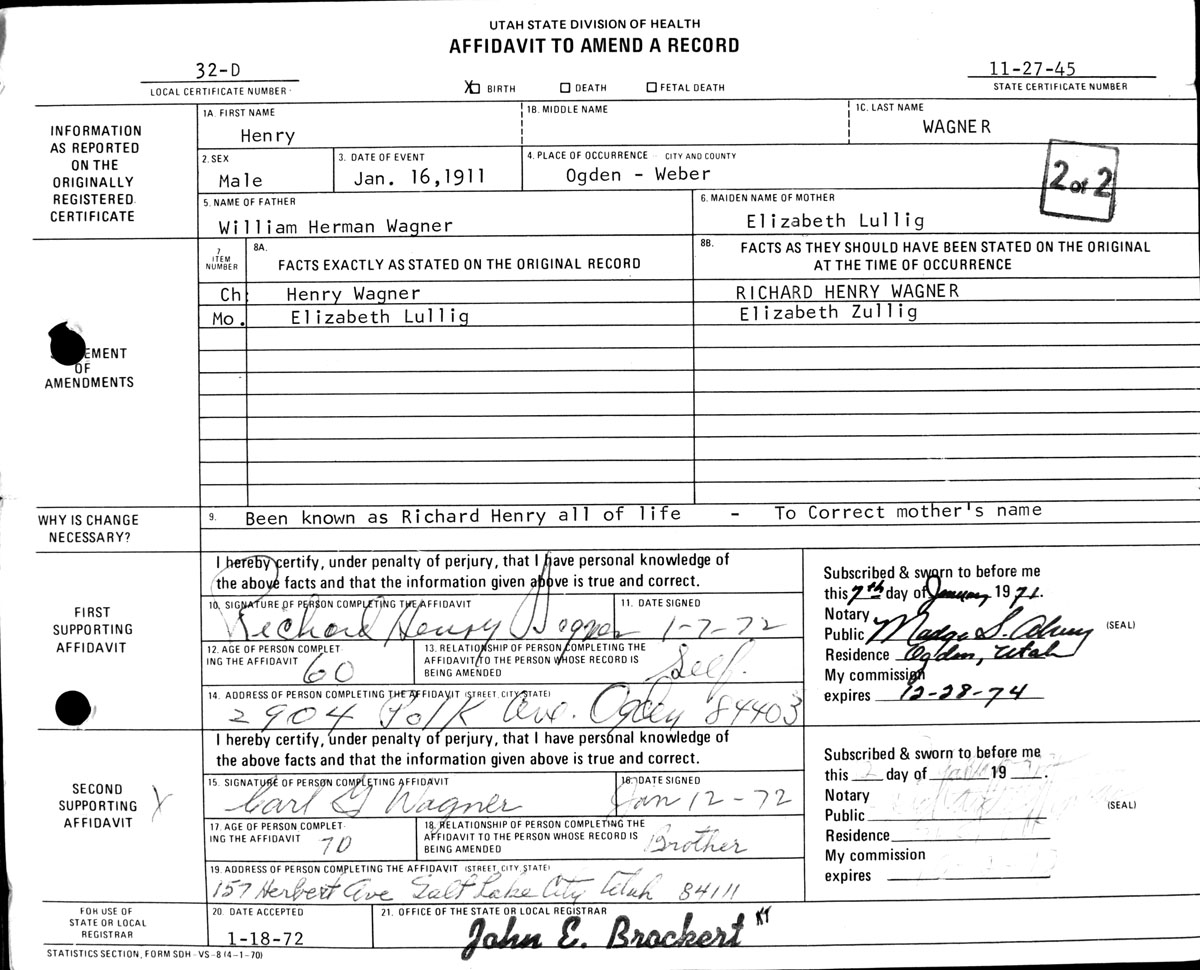 UTAH STATE DIVISION OF HEALTH
AFFIDAVIT TO AMEND A RECORD
32-D
LOCAL CERTIFICATE NUMBER
X BIRTH DEATH FETAL DEATH
11-27-45
STATE CERTIFICATE NUMBER
INFORMATION AS REPORTED ON THE ORIGINALLY REGISTERED CERTIFICATE
1A. FIRST NAME
Henry
1B. MIDDLE NAME
1C. LAST NAME
WAGNER
2. SEX
Male
3. DATE OF EVENT
Jan. 16,1911
4. PLACE OF OCCURRENCE - CITY AND COUNTY
Ogden - Weber
2 of 2
5. NAME OF FATHER
William Herman Wagner
6. MAIDEN NAME OF MOTHER
Elizabeth Lullig
7 ITEM NUMBER
8A. FACTS EXACTLY AS STATED ON THE ORIGINAL RECORD
8B. FACTS AS THEY SHOULD HAVE BEEN STATED ON THE ORIGINAL
AT THE TIME OF OCCURRENCE
Ch Henry Wagner RICHARD HENRY WAGNER
Mo. Elizabeth Lullig Elizabeth Zullig
EMENT
OF
AMENDMENTS
WHY IS CHANGE
NECESSARY?
9. Been known as Richard Henry all of life - To Correct mother's name
FIRST
SUPPORTING
AFFIDAVIT
I hereby certify, under penalty of perjury, that I have personal knowledge of
the above facts and that the information given above is true and correct.
10. SIGNATURE OF PERSON COMPLETING THE AFFIDAVIT
Richard Henry Wagner
11. DATE SIGNED
1-7-72
12. AGE OF PERSON COMPLET-
ING THE AFFIDAVIT
60
13. RELATIONSHIP OF PERSON COMPLETING THE
AFFIDAVIT TO THE PERSON WHOSE RECORD IS
BEING AMENDED
Self.
14. ADDRESS OF PERSON COMPLETING THE AFFIDAVIT (STREET, CITY, STATE)
2904 Polk Ave. Ogden 84403
Subscribed & sworn to before me
this 7th day of January 1971.
Notary
Public Madge S.
Residence Ogden, Utah
My commission
expires 12-28-74
(SEAL)
SECOND
SUPPORTING
AFFIDAVIT
X
I hereby certify, under penalty of perjury, that I have personal knowledge of
the above facts and that the information given above is true and correct.
15. SIGNATURE OF PERSON COMPLETING AFFIDAVIT
Carl G Wagner
16. DATE SIGNED
Jan 12-72
17. AGE OF PERSON COMPLET-
ING THE AFFIDAVIT
70
18. RELATIONSHIP OF PERSON COMPLETING THE
AFFIDAVIT TO THE PERSON WHOSE RECORD IS
BEING AMENDED
Brother
19. ADDRESS OF PERSON COMPLETING THE AFFIDAVIT (STREET, CITY, STATE)
157 Herbert Ave Salt Lake City Utah 84111
Subscribed & sworn to before me
this day of 19
Notary
Public
Residence
My commission
expires
(SEAL)
FOR USE OF
STATE OR LOCAL
REGISTRAR
20. DATE ACCEPTED
1-18-72
21. OFFICE OF THE STATE OR LOCAL REGISTRAR
John E. Brockert KT
STATISTICS SECTION, FORM SDH-VS-8 (4-1-70)